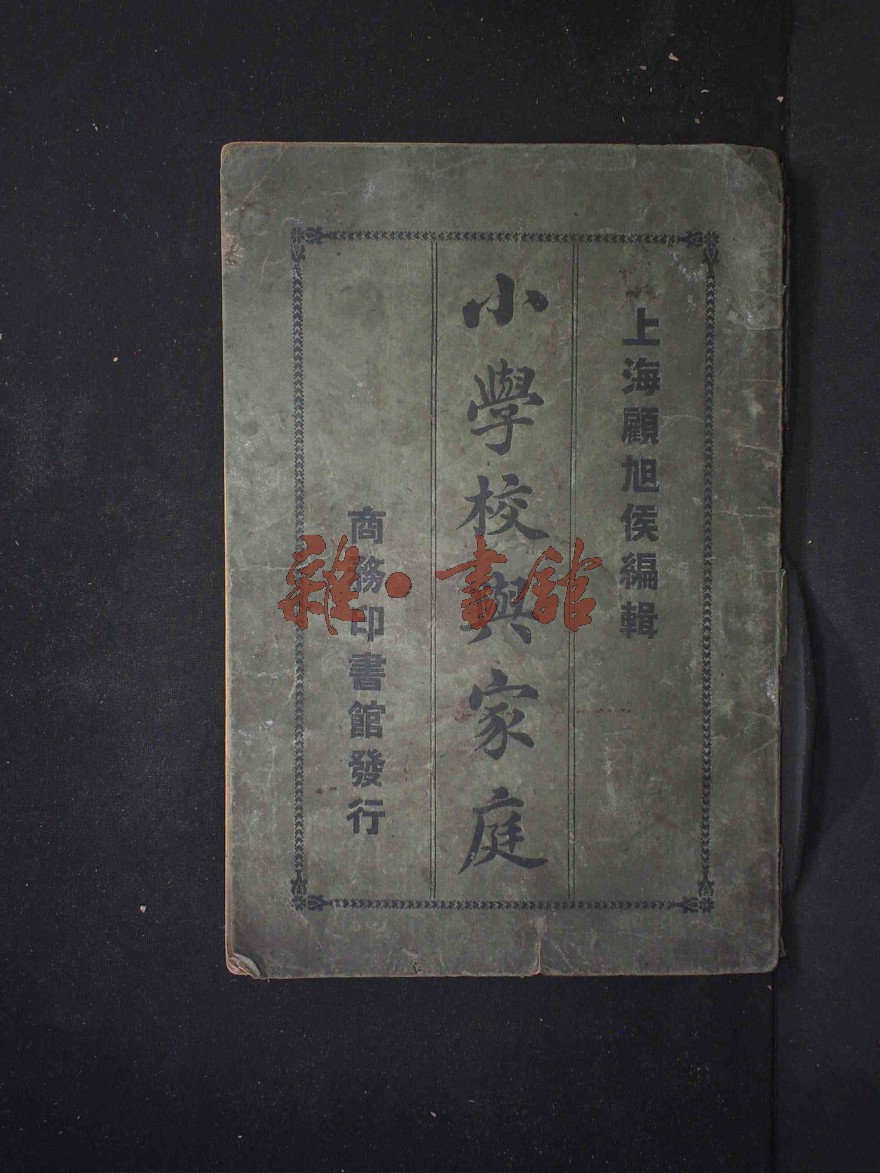 上海顧旭侯編輯
小學校與家庭
商務印書館發行
雜·書館